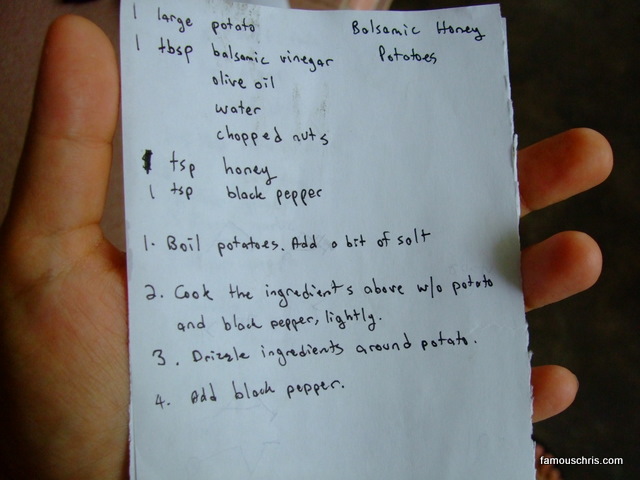 1 large potato
Balsamic Honey
Potatoes
1 tbsp balsamic vinegar
olive oil
water
chopped nuts
1 tsp honey
1 tsp black pepper
1. Boil potatoes. Add a bit of salt
2. Cook the ingredients above w/o potato
and black pepper, lightly.
3. Drizzle ingredients around potato.
4. Add black pepper.
famouschris.com